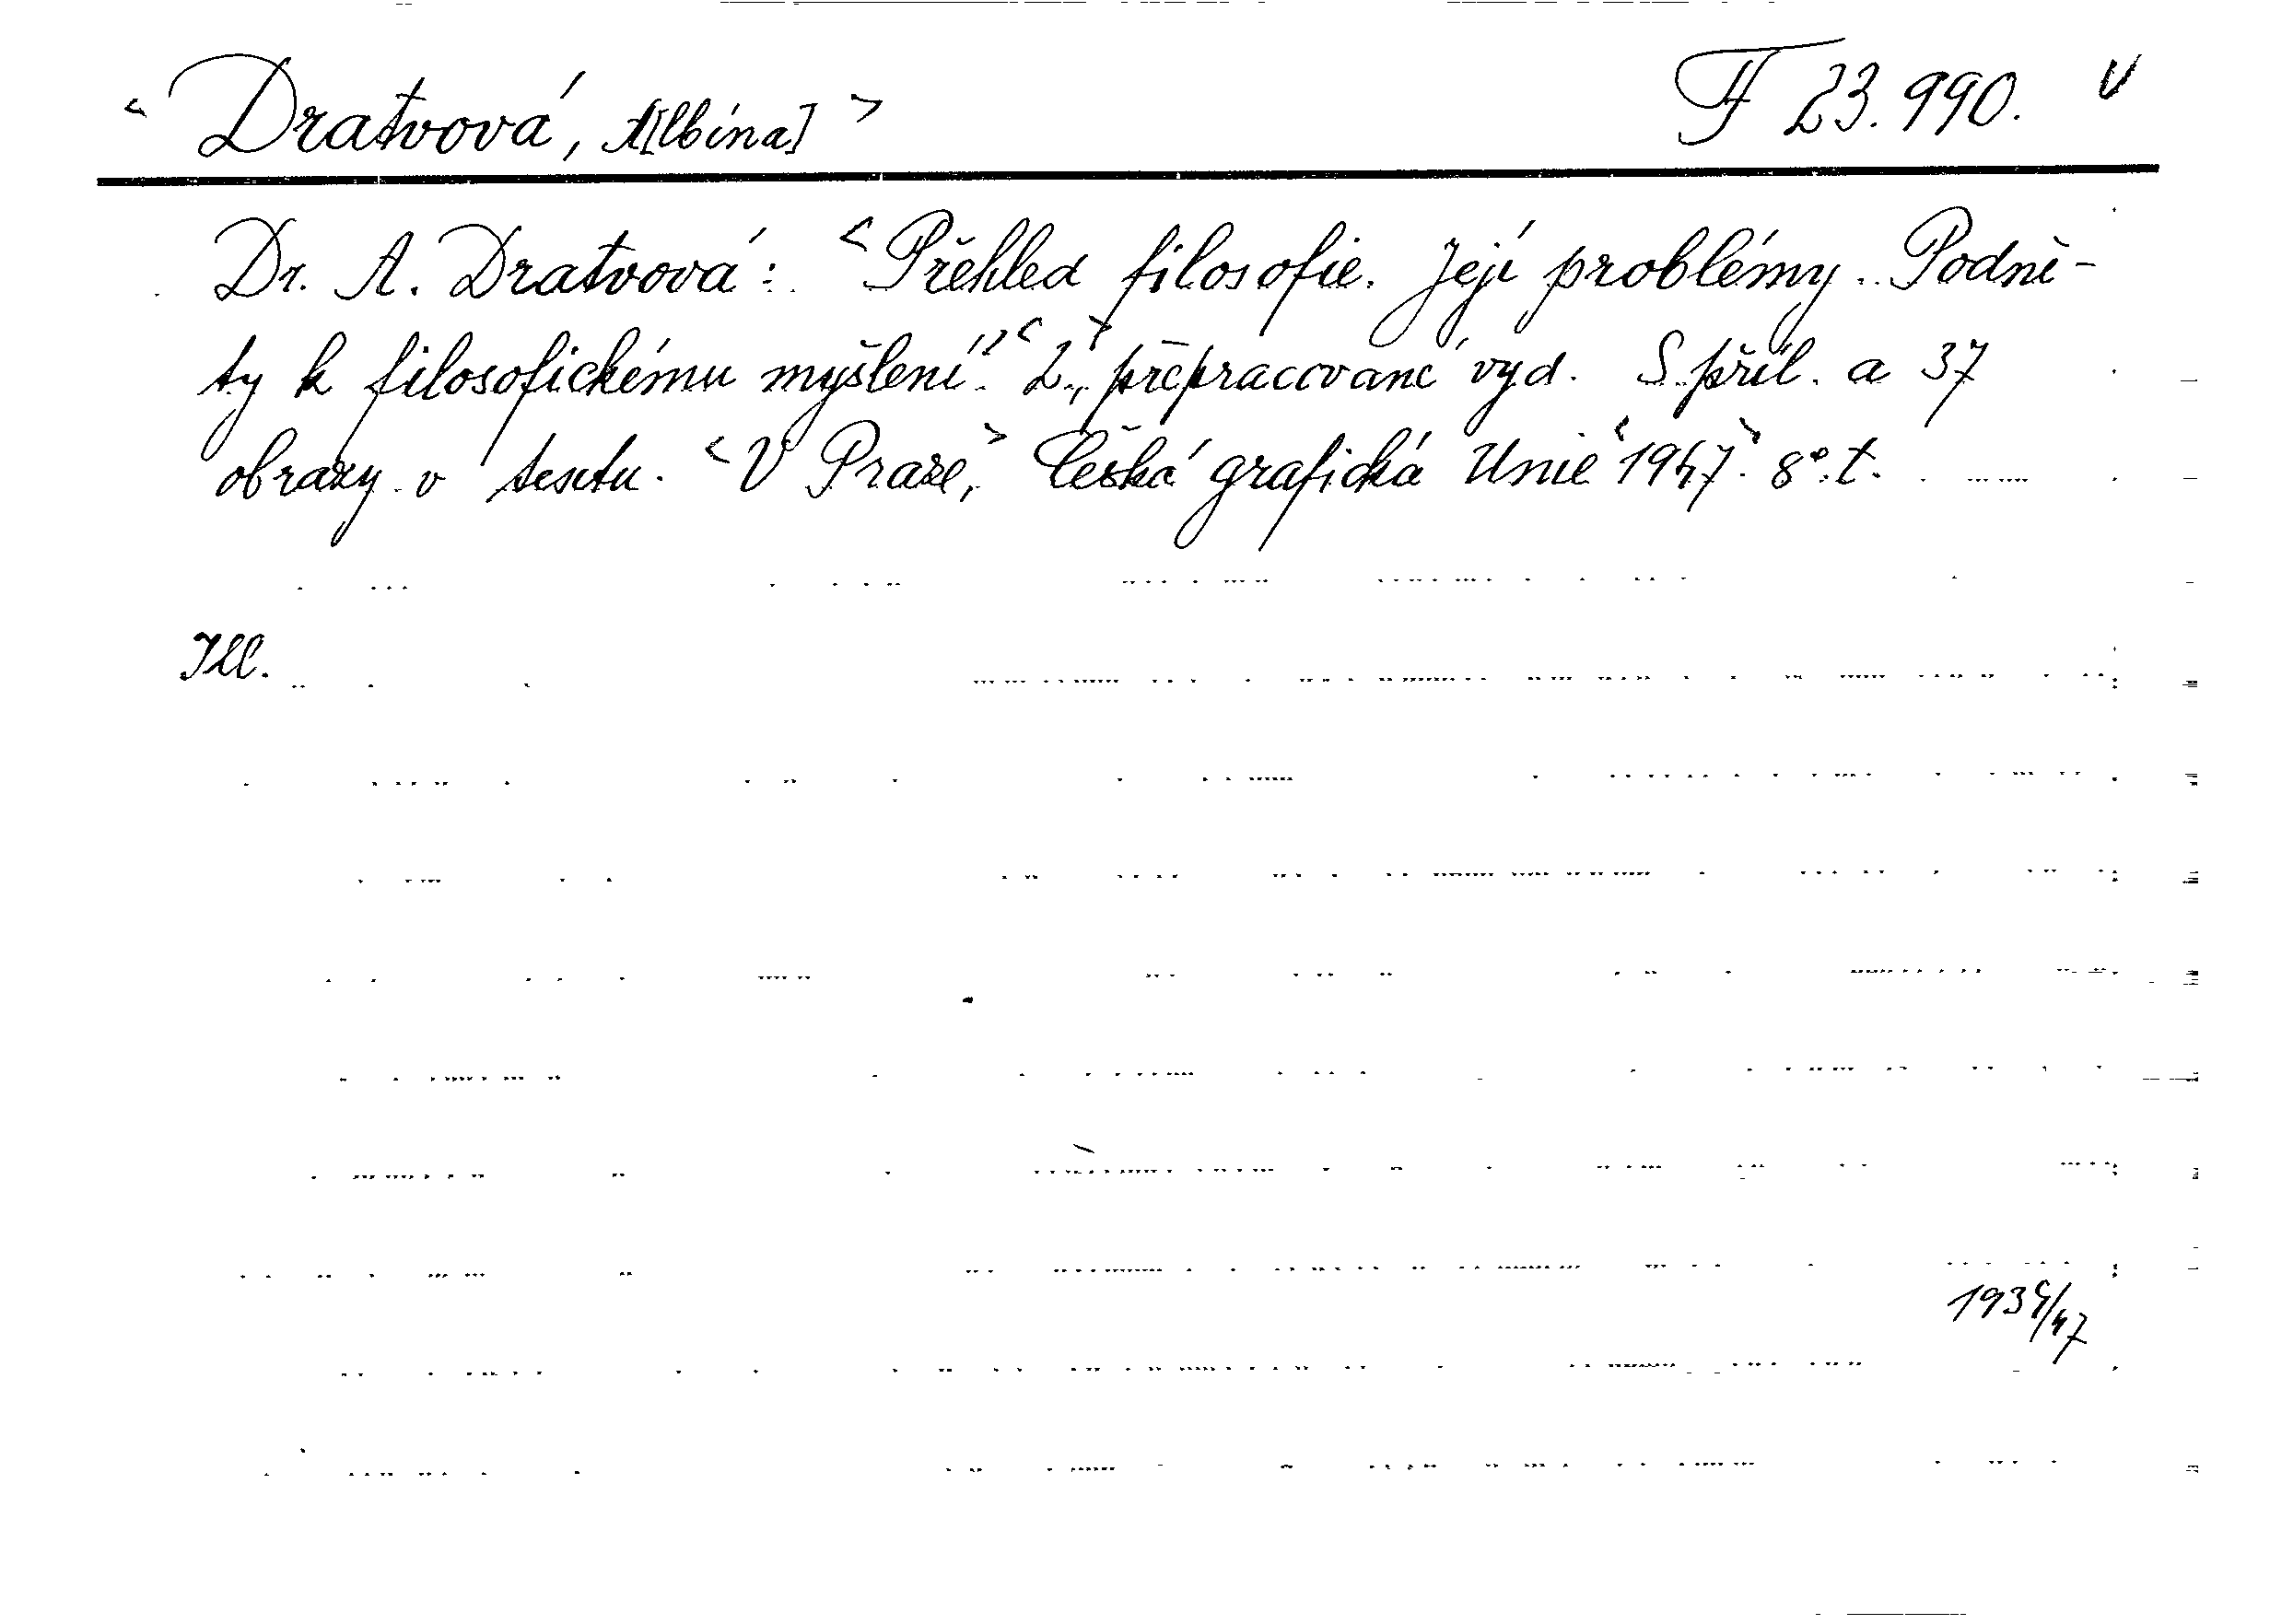 < Dratvová, A[lbína] > F 23.990. v
Dr. A. Dratvová: < Přehled filosofie. Její problémy. Podně-
ty k filosofickému myšlení." > < 2., > přepracované vyd. S příl. a 37
obrazy v textu. < V Praze, > Česká grafická Unie < 1947. > 8°. t.
Ill.
1939/47